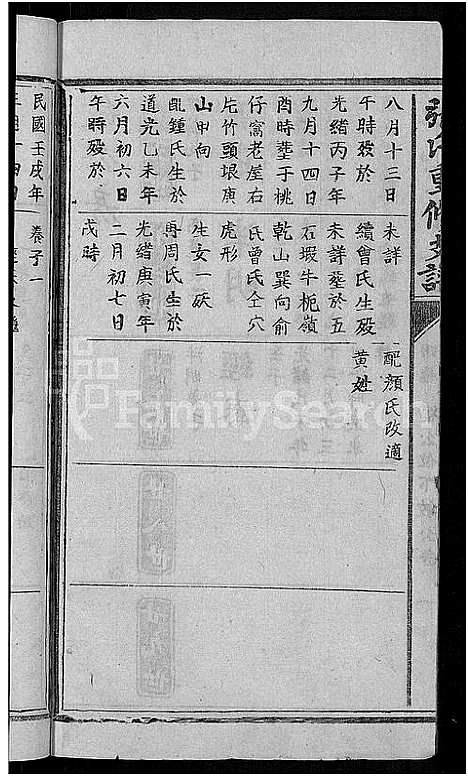 八月十三日
午時歿於
光緒丙子年
九月十四日
酉時塟于桃
仔窩老崖右
片竹頭垠庚
山甲向
配鍾氏生於
道光乙未年
六月初六日
午時歿於
未詳
續曾氏生歿
未詳塟於五
石塅牛栀嶺
乾山巽向俞
氏曾氏仝穴
虎形
生女一妖
再周氏生於
光緒庚寅年
二月初七日
戌時
配顏氏改適
黃姓
民國壬戌年
養子一
FamilySearch